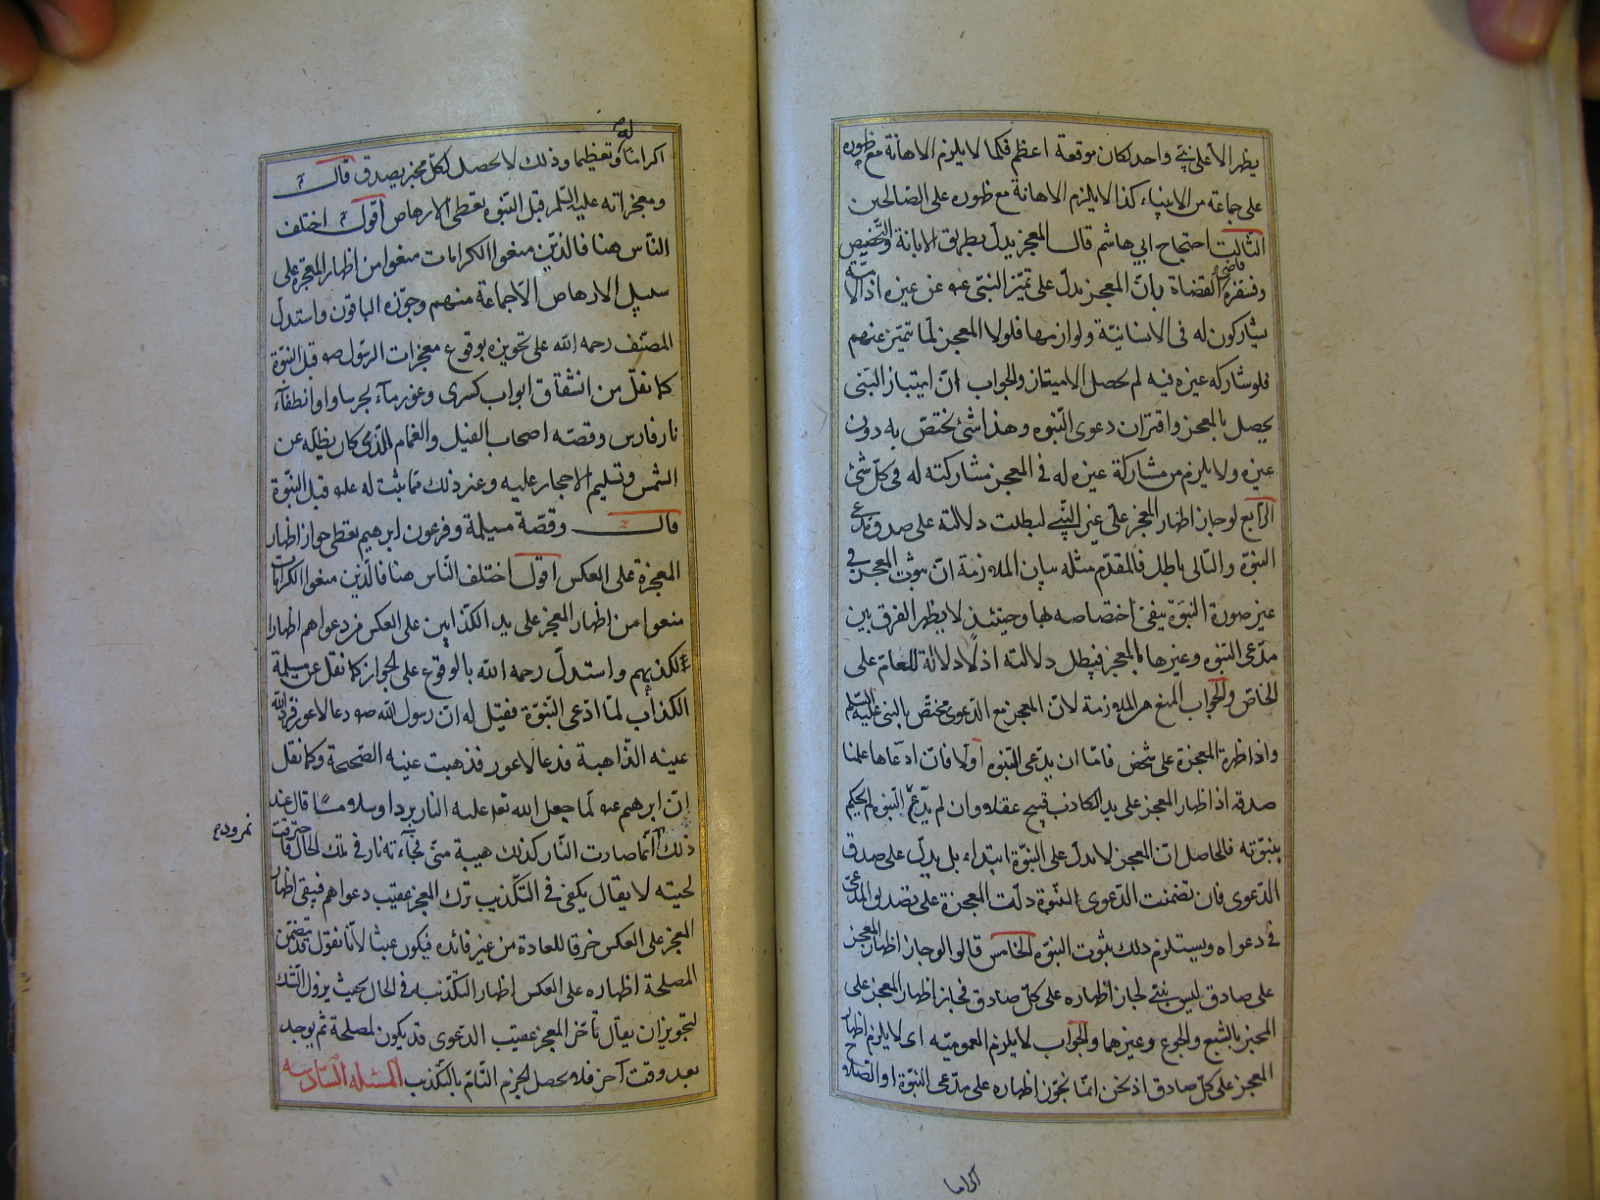 يظهر الا على نبي واحد لكان موقعه اعظم فكما لا يلزم الاهانة مع ظهوره
على جماعة من الانبياء كذا لا يلزم الاهانة مع ظهوره على الصالحين
الثالث احتجاج ابي هاشم قال المعجز يدل بطريق الابانة والتخصيص
وفسّره قاضي القضاة بانّ المعجز يدلّ على تميّز النبيّ عه عن غيره اذ الامة
يشاركون له فى الانسانيّة ولوازمها فلولا المعجز لما تميّز عنهم
فلو شاركه غيره فيه لم يحصل الامتياز والجواب انّ امتياز النبى
يحصل بالمعجز واقتران دعوى النّبوه وهذا شئ يختصّ به دون
غيره ولا يلزم من مشاركة غيره له فى المعجز مشاركته له فى كلّ شئ
الرّابع لو جاز اظهار المعجز على غير النّبي لبطلت دلالته على صدق مدعى
النبوّة والتالى باطل فالمقدّم مثله بيان الملازمة انّ ثبوت المعجز فى
غير صورة النبوّة ينفى اختصاصه بها وحينئذ لا يظهر الفرق بين
مدّعى النبوه وغيرها بالمعجز فيبطل دلالته اذ لا دلالة للعامّ على
الخاصّ والجواب المنع من الملازمة لانّ المعجز مع الدّعوى مختصّ بالنبى عليه السّلم
واذا ظهرة المعجزة على شخص فامّا ان يدّعى النّبوه أو لا فان ادّعاها علمنا
صدقه اذ اظهار المعجز على يد الكاذب قبيح عقلا وان لم يدّعى النّبوه لم يحكم
بنبوّته فالحاصل انّ المعجز لا يدلّ على النبوّة ابتداء بل يدلّ على صدق
الدّعوى فان تضمنت الدّعوى النّبوة دلّت المعجزة على تصديق المدّعى
فى دعواه ويستلزم ذلك ثبوت النبوّه الخامس قالوا لو جاز اظهار المعجز
على صادق ليس بنبيّ لجاز اظهاره على كلّ صادق فجاز اظهار المعجز على
المخبر بالشبع والجوع وغيرهما والجواب لا يلزم العموميّه اى لا يلزم اظهار
المعجز على كلّ صادق اذ نحن انّما نجوّز اظهاره على مدّعى النبوّة او الصّلاح
اكراما
اكراما له وتعظيما وذلك لا يحصل لكلّ مخبر بصدق قال
ومعجزاته عليه السّلم قبل النّبوّه يعطى الارهاص أقول اختلف
النّاس هنا فالذيّن منعوا الكرامات منعوا من اظهار المعجزة على
سبيل الارهاص الّا جماعة منهم وجوّزه الباقون واستدل
المصنّف رحمه الله على تجويزه بوقوع معجزات الرّسول صه قبل النبّوّة
كما نقل من انشقاق ابواب كسرى وغور ماء بحر ساوا وانطفاء
نار فارس وقصّه اصحاب الفيل والغمام الّذى كان يظلّه عن
الشمس وتسليم الاحجار عليه وغير ذلك ممّا ثبت له عليه قبل النبوّة
قال وقصّة مسيلمة وفرعون ابرهيم يعطى جواز اظهار
المعجزة على العكس اقول اختلف النّاس هنا فالّذين منعوا الكرامات
منعوا من اظهار المعجز على يد الكذّابين على العكس من دعواهم اظهارا
لكذبهم واستدلّ رحمه الله بالوقوع على الجواز كما نقل عن مسيلمة
الكذاب لمّا ادّعى النبّوّة فقيل له انّ رسول الله صه دعا لاعور فردّ الله
عينه الذّاهبة فدعا لاعور فذهبت عينه الصّحيحة وكما نقل
انّ ابرهيم عه لمّا جعل الله تعه عليه النار بردا وسلاما قال عند
ذلك انّما صارت النّار كذلك هيبة منّى فجآءته نار فى تلك الحال فاحترقت
نمرود
لحيته لا يقال يكفى فى التّكذيب ترك المعجز عقيب دعواهم فيبقى اظهار
المعجز على العكس خرقا للعادة من غير فائده فيكون عبثا لانّا نقول قد يتضمّن
المصلحة اظهاره على العكس اظهار التّكذيب فى الحال بحيث يزول الشّك
لتجويز ان يقال تأخّر المعجز عقيب الدعوى قد يكون لمصلحة ثم يوجد
بعد وقت آخر فلا يحصل الجزم التّامّ بالتّكذيب المسئله السّادسه